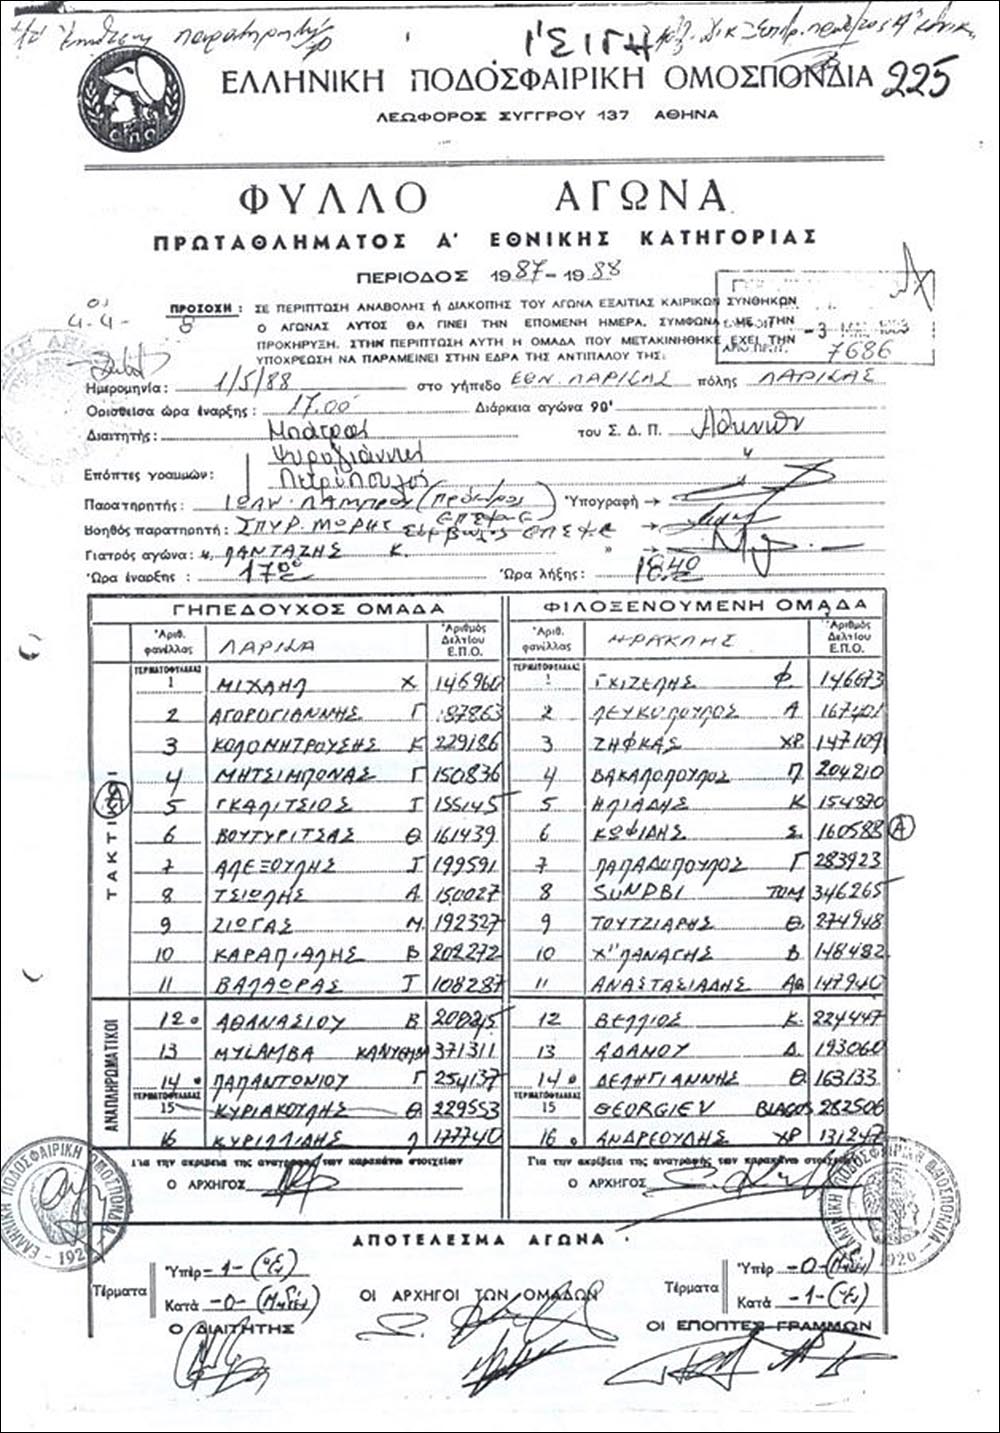 ΓΣΙΓΗ
ΕΛΛΗΝΙΚΗ ΠΟΔΟΣΦΑΙΡΙΚΗ ΟΜΟΣΠΟΝΔΙΑ 225
ΛΕΩΦΟΡΟΣ ΣΥΓΓΡΟΥ 137 ΑΘΗΝΑ
ΕΠΟ
ΦΥΛΛΟ ΑΓΩΝΑ
ΠΡΩΤΑΘΛΗΜΑΤΟΣ Α' ΕΘΝΙΚΗΣ ΚΑΤΗΓΟΡΙΑΣ
ΠΕΡΙΟΔΟΣ 1987-1988
ΠΡΟΣΟΧΗ : ΣΕ ΠΕΡΙΠΤΩΣΗ ΑΝΑΒΟΛΗΣ ή ΔΙΑΚΟΠΗΣ ΤΟΥ ΑΓΩΝΑ ΕΞΑΙΤΙΑΣ ΚΑΙΡΙΚΩΝ ΣΥΝΘΗΚΩΝ
Ο ΑΓΩΝΑΣ ΑΥΤΟΣ ΘΑ ΓΙΝΕΙ ΤΗΝ ΕΠΟΜΕΝΗ ΗΜΕΡΑ, ΣΥΜΦΩΝΑ ΜΕ ΤΗΝ
ΠΡΟΚΗΡΥΞΗ. ΣΤΗΝ ΠΕΡΙΠΤΩΣΗ ΑΥΤΗ Η ΟΜΑΔΑ ΠΟΥ ΜΕΤΑΚΙΝΗΘΗΚΕ ΕΧΕΙ ΤΗΝ
ΥΠΟΧΡΕΩΣΗ ΝΑ ΠΑΡΑΜΕΙΝΕΙ ΣΤΗΝ ΕΔΡΑ ΤΗΣ ΑΝΤΙΠΑΛΟΥ ΤΗΣ:
7686
Ημερομηνία: 1/5/88 στο γήπεδο ΕΘΝ. ΛΑΡΙΣΑΣ πόλης ΛΑΡΙΣΑΣ
Ορισθείσα ώρα έναρξης: 17.00 Διάρκεια αγώνα 90'
Διαιτητής: Μπάτρας του Σ. Δ. Π. Αθηνών
Ψυρογιάννης "
Επόπτες γραμμών: Πετρόπουλος
Παρατηρητής: ΙΩΑΝ. ΛΑΜΠΡΟΥ (Πρόεδρος Ὑπογραφή →
Βοηθός παρατηρητή: ΣΠΥΡ. ΜΩΡΗΣ
Γιατρός αγώνα: ΠΑΝΤΑΖΗΣ Κ. »
Ώρα έναρξης : 17 00 Ώρα λήξης: 18.40
ΓΗΠΕΔΟΥΧΟΣ ΟΜΑΔΑ ΦΙΛΟΞΕΝΟΥΜΕΝΗ ΟΜΑΔΑ
Ἀριθ. φανέλλας ΛΑΡΙΣΑ Ἀριθμός Δελτίου Ε.Π.Ο. Ἀριθ. φανέλλας ΗΡΑΚΛΗΣ Ἀριθμός Δελτίου Ε.Π.Ο.
ΤΑΚΤΙΚΟΙ
ΤΕΡΜΑΤΟΦΥΛΑΚΑΣ ΤΕΡΜΑΤΟΦΥΛΑΚΑΣ
1 ΜΙΧΑΗΛ Χ 146960 1 ΓΚΙΖΕΛΗΣ Φ. 146673
2 ΑΓΟΡΟΓΙΑΝΝΗΣ Γ 187863 2 ΛΕΥΚΟΠΟΥΛΟΣ Α 167401
3 ΚΟΛΟΜΗΤΡΟΥΣΗΣ Κ 229186 3 ΖΗΦΚΑΣ ΧΡ. 147109
4 ΜΗΤΣΙΜΠΟΝΑΣ Γ 150836 4 ΒΑΚΑΛΟΠΟΥΛΟΣ Π 204210
5 ΓΚΑΛΙΤΣΙΟΣ Ι 155145 5 ΗΛΙΑΔΗΣ Κ 154870
6 ΒΟΥΤΥΡΙΤΣΑΣ Θ 161439 6 ΚΩΦΙΔΗΣ Σ. 160588 Α
7 ΑΛΕΞΟΥΛΗΣ Ι 199591 7 ΠΑΠΑΔΟΠΟΥΛΟΣ Γ 283923
8 ΤΣΙΩΛΗΣ Α. 150027 8 SUNDBI ΤΟΜ 346265
9 ΖΙΩΓΑΣ Μ. 192327 9 ΤΟΥΤΖΙΑΡΗΣ Θ. 274948
10 ΚΑΡΑΠΙΑΛΗΣ Β 202272 10 Χ"ΠΑΝΑΓΗΣ Β 148482
11 ΒΑΛΑΩΡΑΣ Ι 108287 11 ΑΝΑΣΤΑΣΙΑΔΗΣ ΑΘ 147940
ΑΝΑΠΛΗΡΩΜΑΤΙΚΟΙ
12 ΑΘΑΝΑΣΙΟΥ Β 208215 12 ΒΕΛΛΙΟΣ Κ. 224447
13 MYLAMBA 371311 13 ΑΔΑΜΟΥ Δ. 193060
14 ΠΑΠΑΝΤΟΝΙΟΥ Γ 254137 14 ΔΕΛΗΓΙΑΝΝΗΣ Θ 163133
ΤΕΡΜΑΤΟΦΥΛΑΚΑΣ ΤΕΡΜΑΤΟΦΥΛΑΚΑΣ
15 ΚΥΡΙΑΚΟΥΛΗΣ Θ 229553 15 GEORGIEV BLAGOS 282506
16 ΚΥΡΙΛΛΙΔΗΣ Λ 177740 16 ΑΝΔΡΕΟΥΔΗΣ ΧΡ 131247
Για την ακρίβεια της αναγραφής των παραπάνω στοιχείων Για την ακρίβεια της αναγραφής των παραπάνω στοιχείων
Ο ΑΡΧΗΓΟΣ Ο ΑΡΧΗΓΟΣ
ΑΠΟΤΕΛΕΣΜΑ ΑΓΩΝΑ
Τέρματα Ὑπέρ -1- (Ἕν) Τέρματα Ὑπέρ -0- (Μηδέν)
Κατά -0- (Μηδέν) ΟΙ ΑΡΧΗΓΟΙ ΤΩΝ ΟΜΑΔΩΝ Κατά -1- (Ἕν)
Ο ΔΙΑΙΤΗΤΗΣ ΟΙ ΕΠΟΠΤΕΣ ΓΡΑΜΜΩΝ